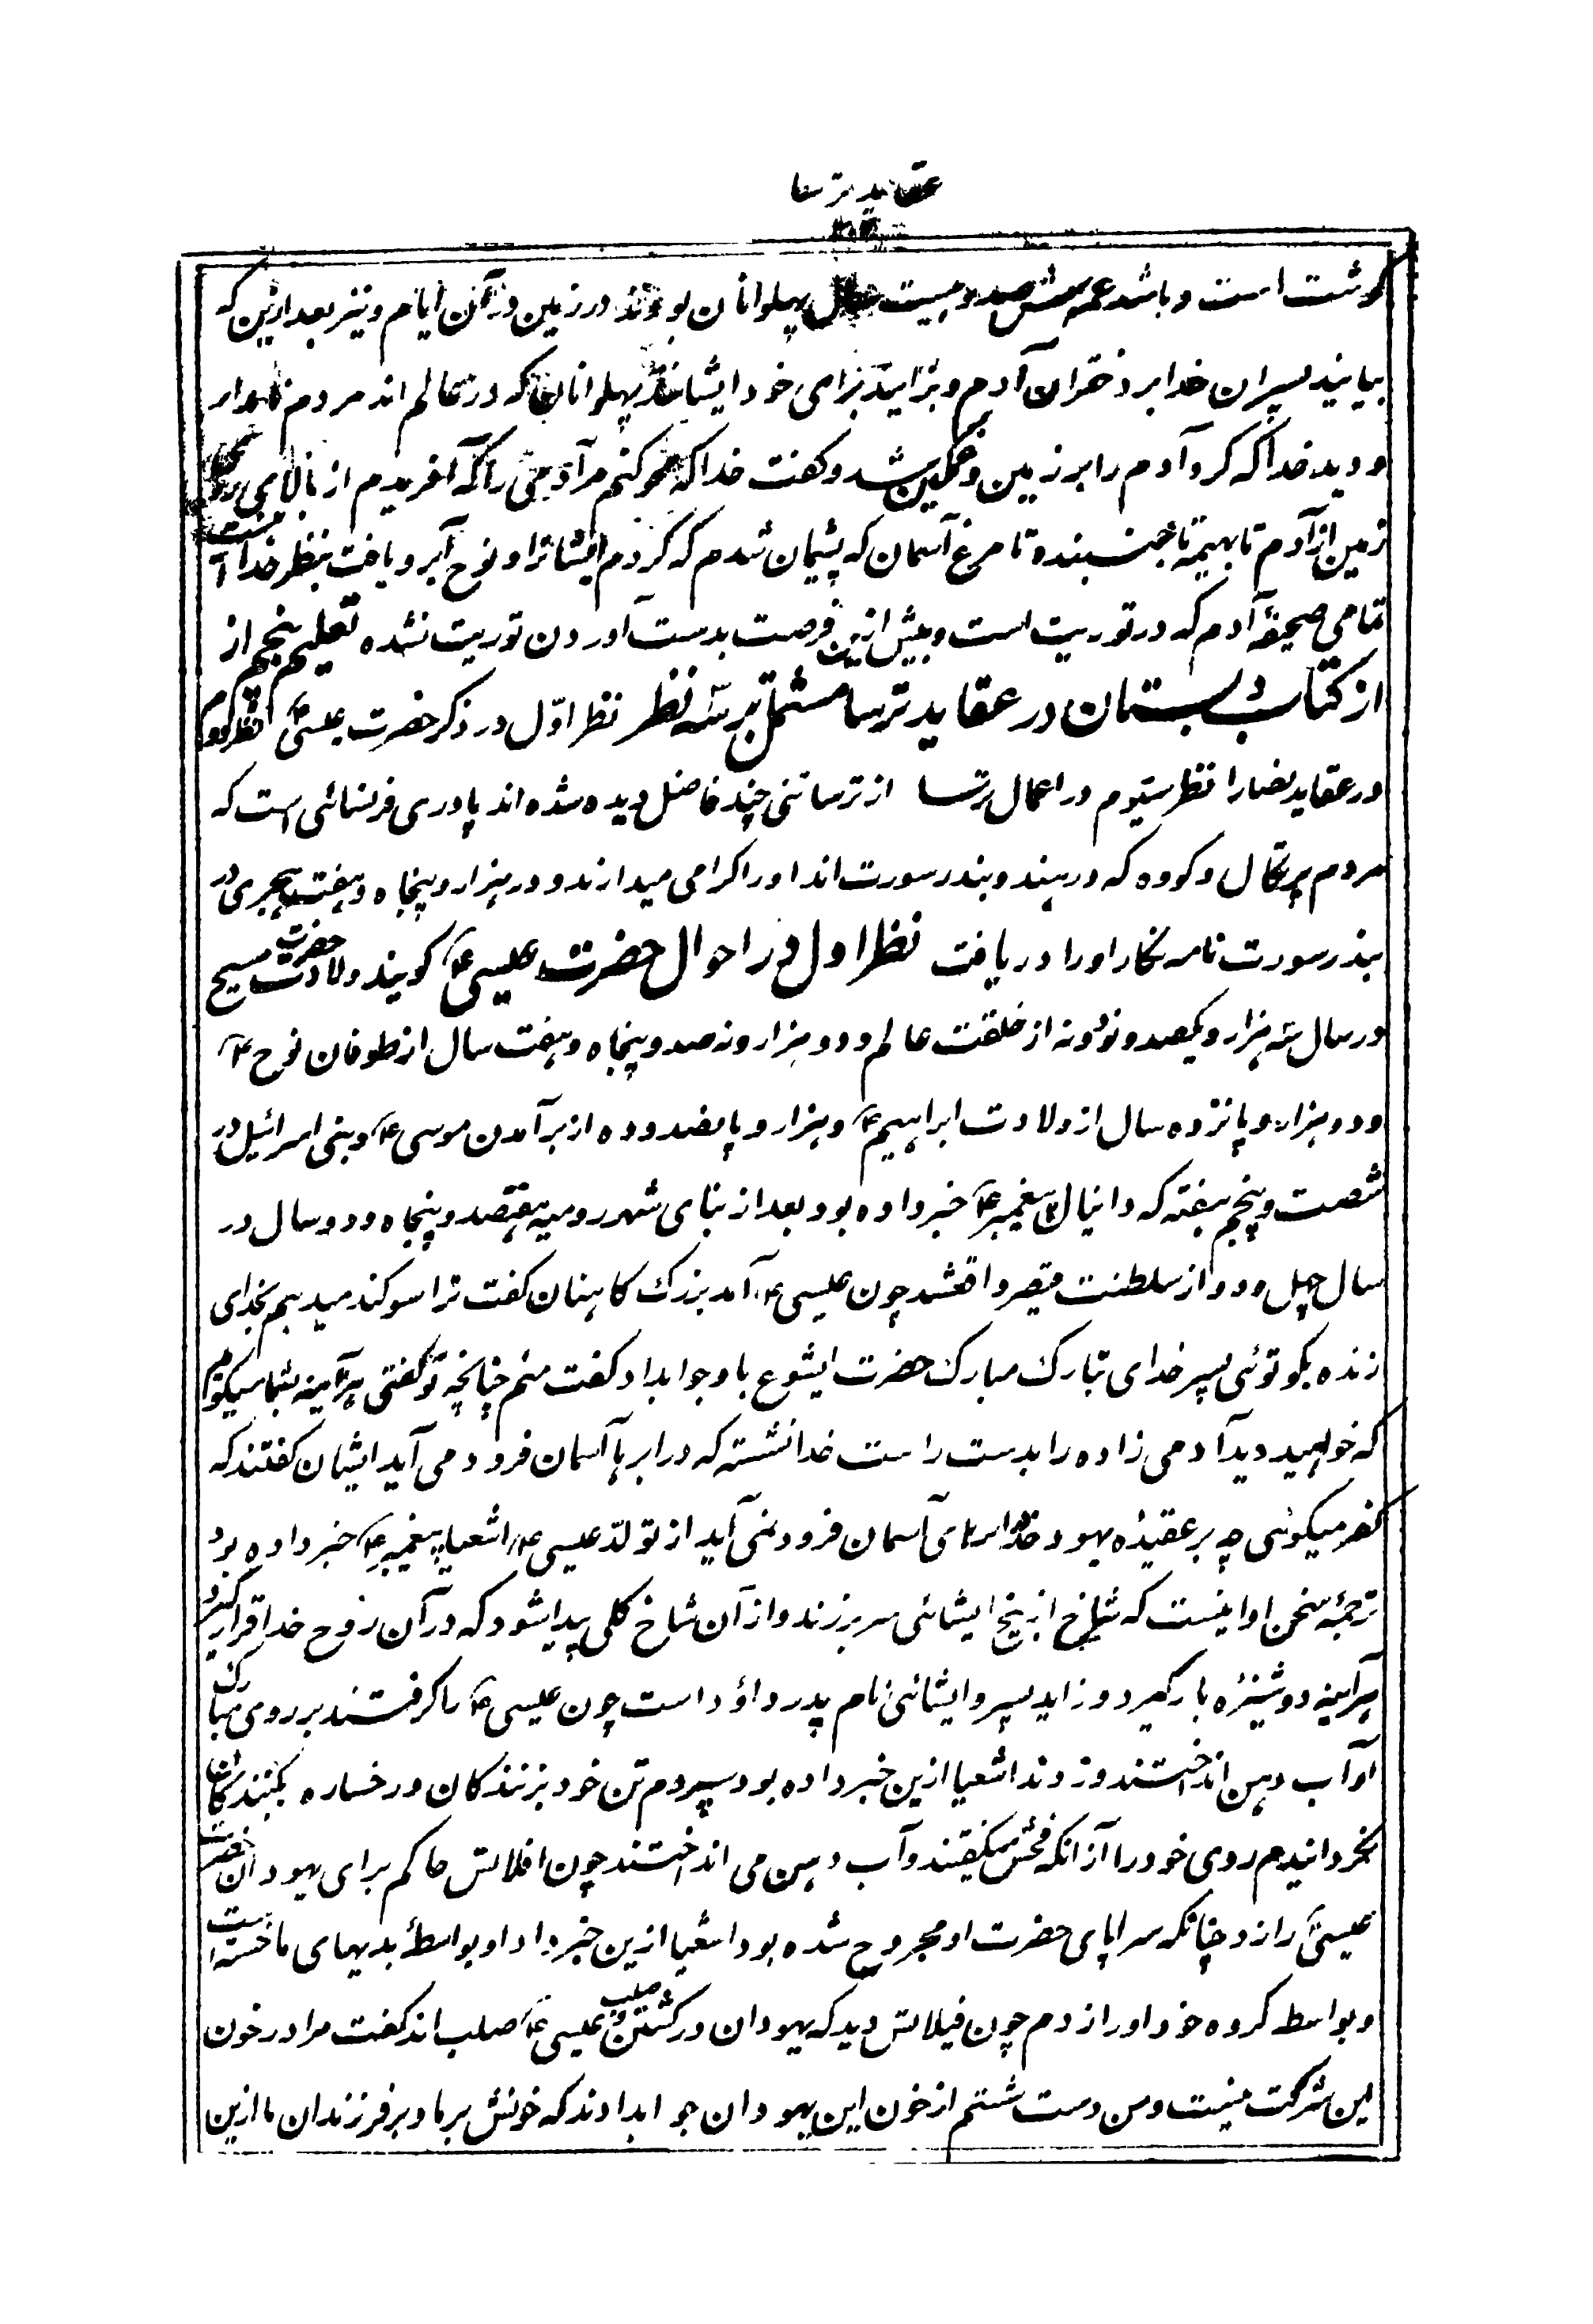 عقاید ترسا
گوشت است و باشد عمرش صد و بیست سال پهلوانان بودند در زمین در آن ایام و نیز بعد ازین که
بیایند پسران خدا بر دختران آدم و بزایند برای خود ایشانند پهلوانان که در عالم اند مردم نامدار
و دید خدا که کرد آدم را بر زمین و غمگین شد و گفت خدا که محو کنم مر آدمی را که آفریدم از بالای روی
زمین از آدم تا بهیمه تا جنبنده و تا مرغ آسمان که پشیمان شدم که کردم ایشانرا و نوح آبرو یافت بنظر خدا اینست
تمامی صحیفهٔ آدم که در توریت است و بیش ازین فرصت بدست آوردن توریت نشده تعلیم پنجم از
از کتاب دبستان در عقاید ترسا مشتمل بر سه نظر نظر اوّل در ذکر حضرت عیسیٰؑ نظر دوم
در عقاید نصارا نظر سیوم در اعمال ترسا از ترسا تنی چند فاضل دیده شده اند پادری فرنسائی است که
مردم پرتکال و کووه که در هند و بندر سورت اند او را گرامی میدارند و در هزار و پنجاه و هفت هجری در
بندر سورت نامه نگار او را دریافت نظر اول در احوال حضرت عیسیؑ گویند ولادت حضرت مسیح
در سال سه هزار و یکصد و نود و نه از خلقت عالم و دو هزار و نه صد و پنجاه و هفت سال از طوفان نوحؑ
و دو هزار و پانزده سال از ولادت ابراهیمؑ و هزار و پانصد و ده از برآمدن موسیؑ و بنی اسرائیل در
شصت و پنجم هفته که دانیال پیغمبرؑ خبر داده بود بعد از بنای شهر رومیه هفتصد و پنجاه و دو سال در
سال چهل و دو از سلطنت قیصر واقعشد چون عیسیؑ آمد بزرگ کاهنان گفت ترا سوگند میدهم بخدای
زنده بگو توئی پسر خدای تبارک مبارک حضرت ایشوع باو جوابداد گفت منم چنانچه تو گفتی هرآینه بشما میگویم
که خواهید دید آدمی زاده را بدست راست خدا نشسته که در ابرها آسمان فرود می آید ایشان گفتند که
کفر میگوئی چه بر عقیدهٔ یهود خدا در ابرهای آسمان فرود نمی آید از تولّد عیسیؑ اشعیا پیغمبرؑ خبر داده بود
ترجمهٔ سخن او اینست که شاخ از بیخ ایشائی سر بر زند و از آن شاخ گلی پیدا شود که در آن روح خدا قرار گیرد
هرآینه دوشیزه بار گیرد و زاید پسر و ایشائی نام پدر داؤد است چون عیسیؑ را گرفتند بر روی مبارک
او آب دهن انداختند و زدند اشعیا ازین خبر داده بود سپردم تن خود بزنندگان و رخساره بکنندگان
نگردانیدم روی خود را از آنکه فحش میگفتند و آب دهن می انداختند چون افلاتس حاکم برای یهودان حضرت
عیسیٰؑ را زد چنانکه سراپای حضرت او مجروح شده بود اشعیا ازین خبر داد او بواسطهٔ بدیهای ما خسته است
و بواسط گروه خود او را زدم چون فیلاتس دید که یهودان در کشتن و صلب عیسیؑ صلب اند گفت مرا در خون
این شرکت نیست و من دست شستم از خون این یهودان جوابدادند که خونش بر ما و بر فرزندان ما ازین